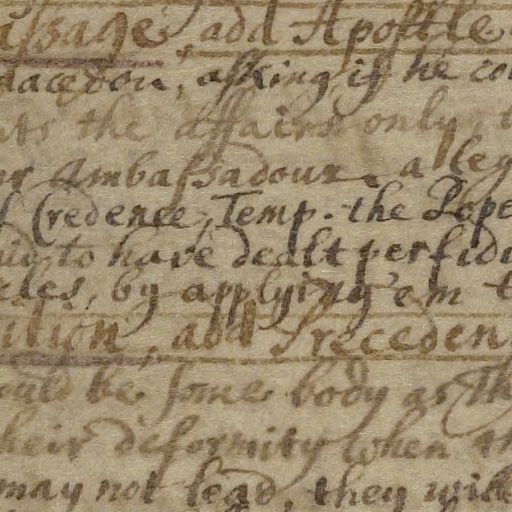 assage, add Apostle
Macedon, asking if he co
the affairs only
Ambassadour, a Leg
Credence, Temp. the Pope
to have dealt perfid
by applying 'em t
add Preceden
ould be some body as Th
heir deformity when th
may not lead, they will